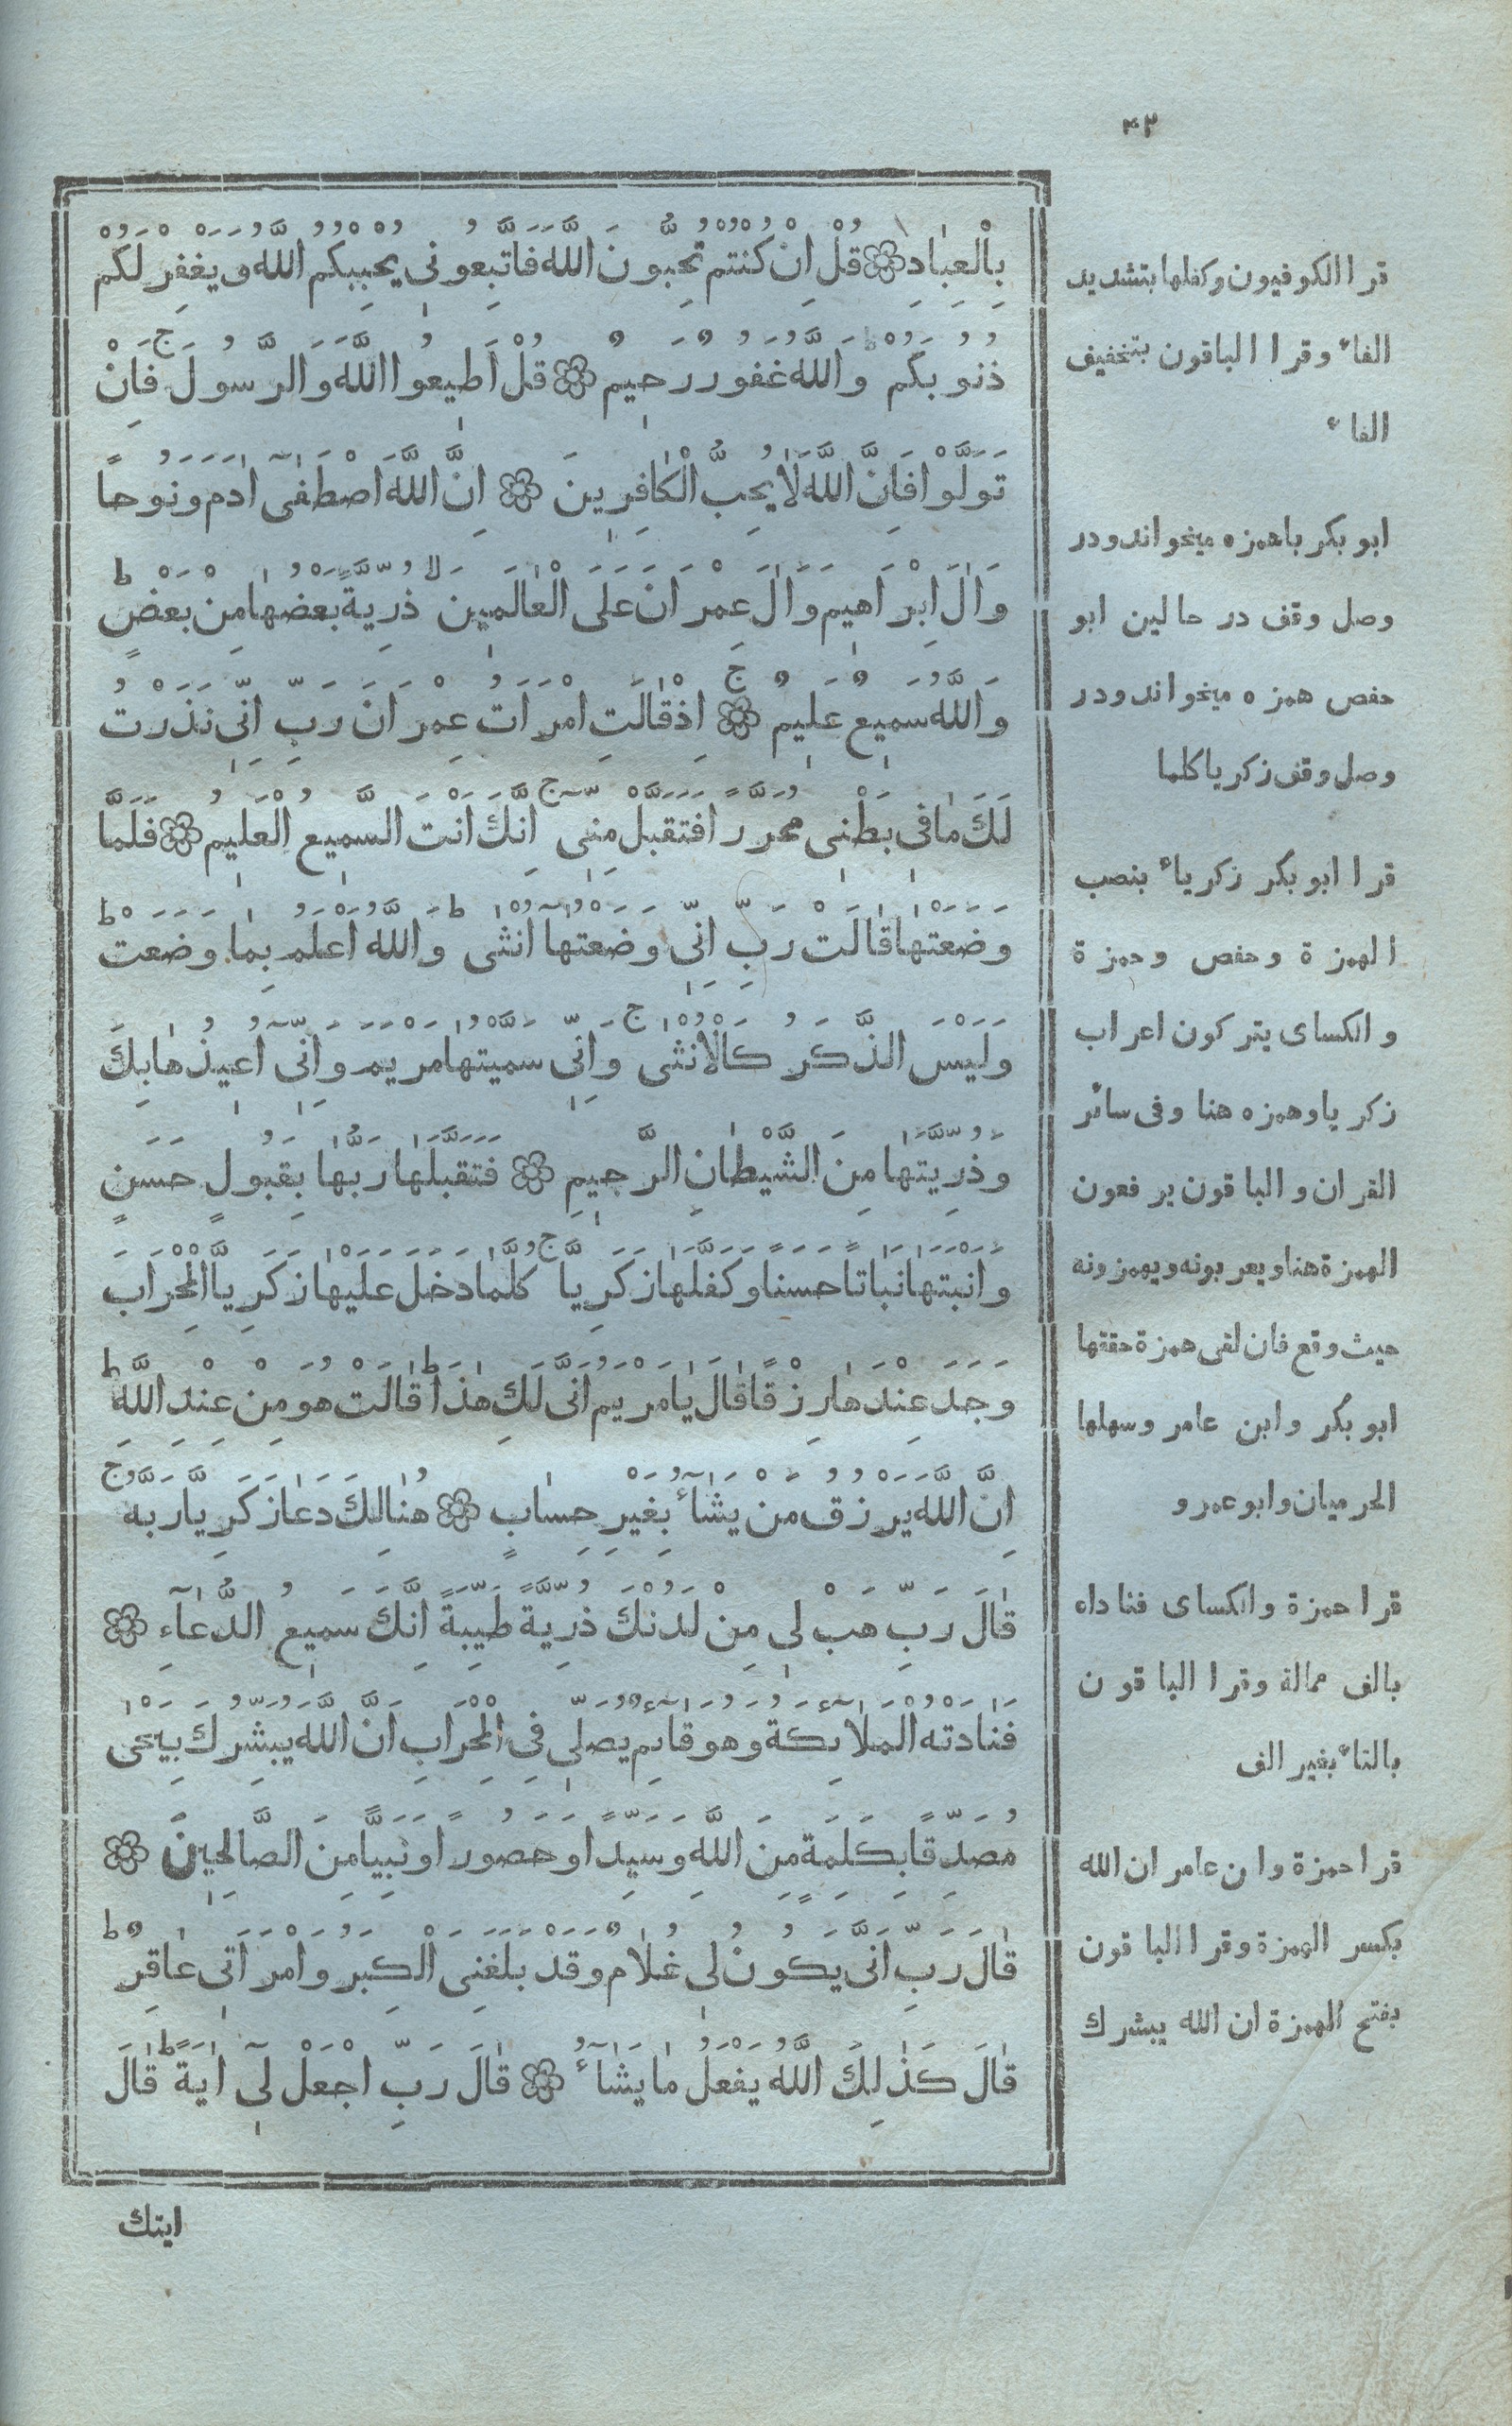 ۴۳
بِالْعِبَادِ ۞ قُلْ اِنْ كُنْتُمْ تُحِبُّونَ اللّٰهَ فَاتَّبِعُونِى يُحْبِبْكُمُ اللّٰهُ وَيَغْفِرْ لَكُمْ
ذُنُوبَكُمْ ط وَاللّٰهُ غَفُورٌ رَحِيمٌ ۞ قُلْ اَطِيعُوا اللّٰهَ وَالرَّسُولَ ج فَاِنْ
تَوَلَّوْا فَاِنَّ اللّٰهَ لَا يُحِبُّ الْكَافِرِينَ ۞ اِنَّ اللّٰهَ اصْطَفٰى آدَمَ وَنُوحًا
وَاٰلَ اِبْرَاهِيمَ وَاٰلَ عِمْرَانَ عَلَى الْعَالَمِينَ لا ذُرِّيَّةً بَعْضُهَا مِنْ بَعْضٍ ط
وَاللّٰهُ سَمِيعٌ عَلِيمٌ ج ۞ اِذْ قَالَتِ امْرَاَتُ عِمْرَانَ رَبِّ اِنِّى نَذَرْتُ
لَكَ مَا فِى بَطْنِى مُحَرَّرًا فَتَقَبَّلْ مِنِّى ج اِنَّكَ اَنْتَ السَّمِيعُ الْعَلِيمُ ۞ فَلَمَّا
وَضَعَتْهَا قَالَتْ رَبِّ اِنِّى وَضَعْتُهَا اُنْثٰى ط وَاللّٰهُ اَعْلَمُ بِمَا وَضَعَتْ ط
وَلَيْسَ الذَّكَرُ كَالْاُنْثٰى ج وَاِنِّى سَمَّيْتُهَا مَرْيَمَ وَاِنِّى اُعِيذُهَا بِكَ
وَذُرِّيَّتَهَا مِنَ الشَّيْطَانِ الرَّجِيمِ ۞ فَتَقَبَّلَهَا رَبُّهَا بِقَبُولٍ حَسَنٍ
وَاَنْبَتَهَا نَبَاتًا حَسَنًا وَكَفَّلَهَا زَكَرِيَّا ج كُلَّمَا دَخَلَ عَلَيْهَا زَكَرِيَّا الْمِحْرَابَ
وَجَدَ عِنْدَهَا رِزْقًا قَالَ يَا مَرْيَمُ اَنّٰى لَكِ هٰذَا ط قَالَتْ هُوَ مِنْ عِنْدِ اللّٰهِ ط
اِنَّ اللّٰهَ يَرْزُقُ مَنْ يَشَآءُ بِغَيْرِ حِسَابٍ ۞ هُنَالِكَ دَعَا زَكَرِيَّا رَبَّهُ ج
قَالَ رَبِّ هَبْ لِى مِنْ لَدُنْكَ ذُرِّيَّةً طَيِّبَةً اِنَّكَ سَمِيعُ الدُّعَآءِ ۞
فَنَادَتْهُ الْمَلَآئِكَةُ وَهُوَ قَآئِمٌ يُصَلِّى فِى الْمِحْرَابِ اَنَّ اللّٰهَ يُبَشِّرُكَ بِيَحْيٰى
مُصَدِّقًا بِكَلِمَةٍ مِنَ اللّٰهِ وَسَيِّدًا وَحَصُورًا وَنَبِيًّا مِنَ الصَّالِحِينَ ۞
قَالَ رَبِّ اَنّٰى يَكُونُ لِى غُلَامٌ وَقَدْ بَلَغَنِىَ الْكِبَرُ وَامْرَاَتِى عَاقِرٌ ط
قَالَ كَذٰلِكَ اللّٰهُ يَفْعَلُ مَا يَشَآءُ ۞ قَالَ رَبِّ اجْعَلْ لِىٓ اٰيَةً ط قَالَ
ايتك
قرا الكوفيون وكفلها بتشديد
الفاء وقرا الباقون بتخفيف
الفاء
ابو بكر باهمزه ميخواند ودر
وصل وقف در حالين ابو
حفص همزه ميخواند ودر
وصل وقف زكريا كلما
قرا ابو بكر زكرياء بنصب
الهمزة وحفص وحمزة
والكساى يتركون اعراب
زكريا وهمزه هنا وفى سائر
القران والباقون يرفعون
الهمزة هنا ويعربونه ويهمزونه
حيث وقع فان لقى همزة حققها
ابو بكر وابن عامر وسهلها
الحرميان وابو عمرو
قرا حمزة والكساى فناداه
بالف ممالة وقرا الباقون
بالتاء بغير الف
قرا حمزة وان عامر ان الله
بكسر الهمزة وقرا الباقون
بفتح الهمزة ان الله يبشرك